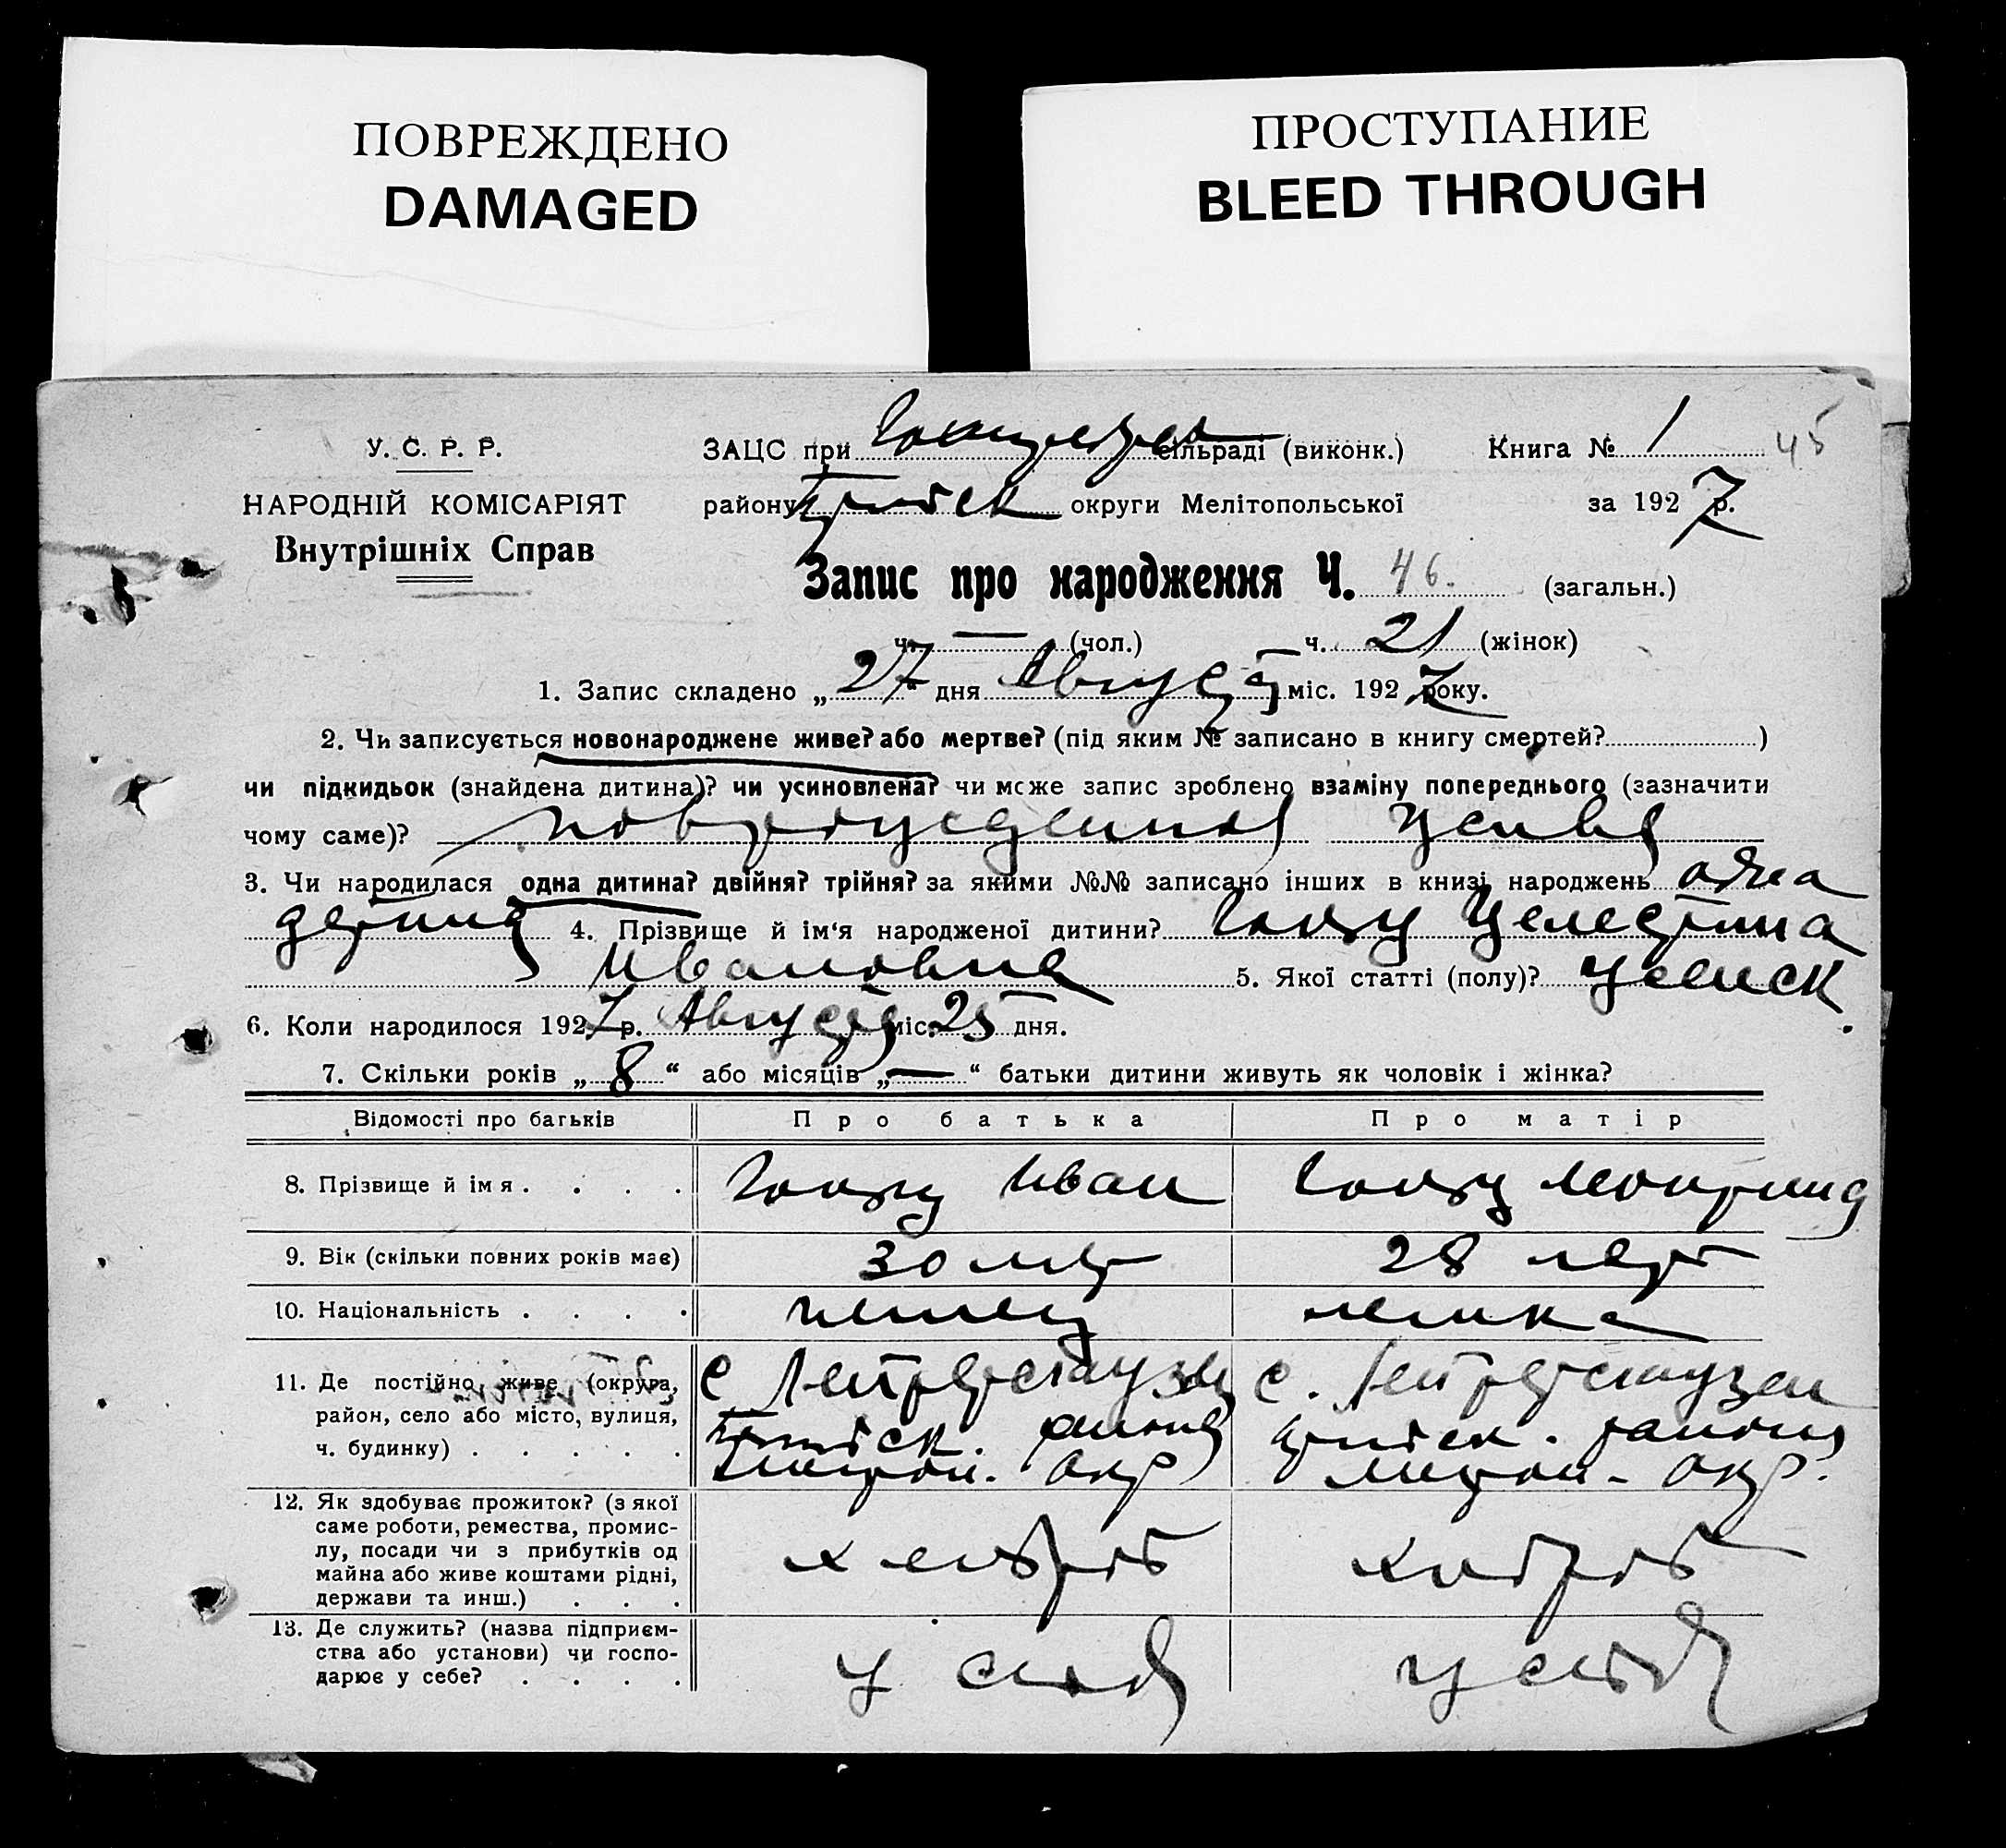 ПОВРЕЖДЕНО
DAMAGED
ПРОСТУПАНИЕ
BLEED THROUGH
У. С. Р. Р.
НАРОДНІЙ КОМІСАРІЯТ
Внутрішніх Справ
ЗАЦС при сільраді (виконк.) Книга № 1 45
району округи Мелітопольської за 1927 р.
Запис про народження Ч. 46. (загальн.)
ч. — (чол.) ч. 21 (жінок)
1. Запис складено „27“ дня Августа міс. 1927 року.
2. Чи записується новонароджене живе? або мертве? (під яким № записано в книгу смертей? )
чи підкидьок (знайдена дитина)? чи усиновлена? чи може запис зроблено взаміну попереднього (зазначити
чому саме)? живая
3. Чи народилася одна дитина? двійня? трійня? за якими №№ записано інших в книзі народжень одна
4. Прізвище й ім‘я народженої дитини? Целестина
Ивановна 5. Якої статті (полу)? женск.
6. Коли народилося 1927 р. Августа міс. 25 дня.
7. Скільки років „8“ або місяців „—“ батьки дитини живуть як чоловік і жінка?
Відомості про батьків Про батька Про матір
8. Прізвище й імя . . . . Иван
9. Вік (скільки повних років має) 30 лет 28 лет
10. Національність . . . . немец немка
11. Де постійно живе (округа,
район, село або місто, вулиця,
ч. будинку) . . . . .
с. района Окр
с. района Окр.
12. Як здобуває прожиток? (з якої
саме роботи, ремества, промис-
лу, посади чи з прибутків од
майна або живе коштами рідні,
держави та инш.) . . .
хлебороб хлебороб
13. Де служить? (назва підприєм-
ства або установи) чи госпо-
дарює у себе? . . . .
у себя у себя